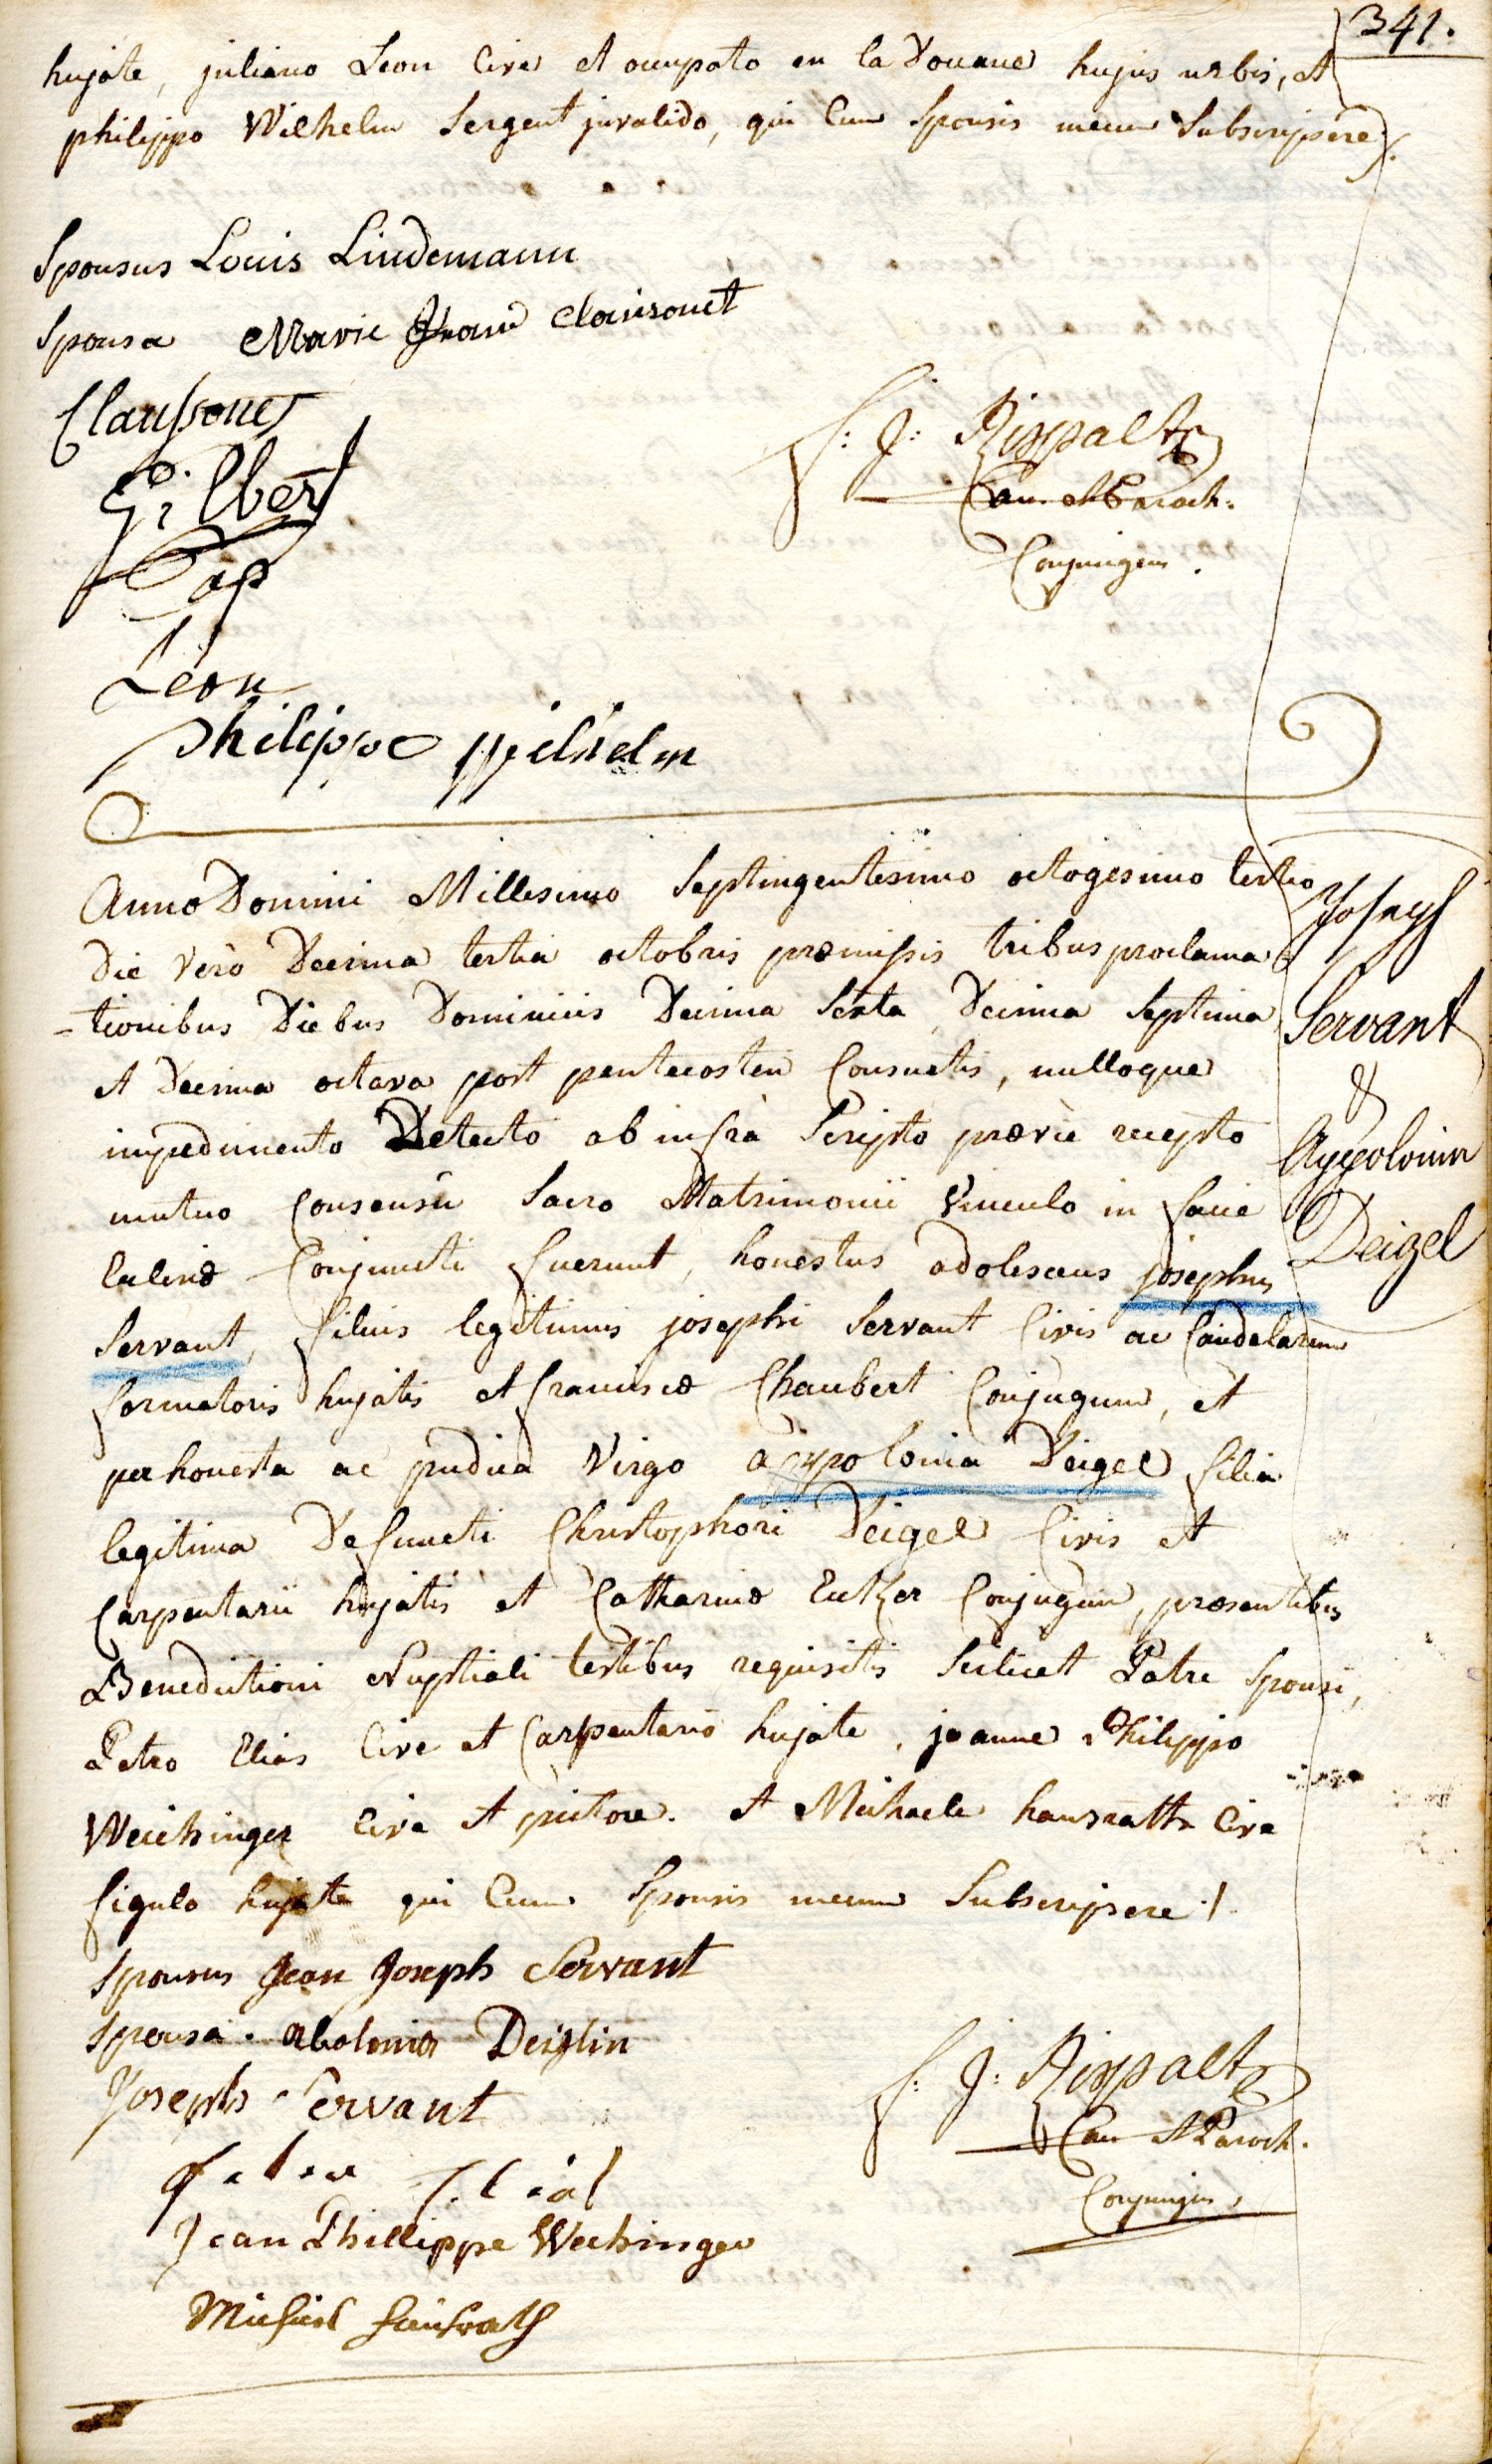 341.
hujate, juliano Leon Cive et occupato en la Douane hujus urbis, et
philippo Wilhelm Sergent invalido, qui Cum Sponsis mecum Subscripsere ∕.
Sponsus Louis Lindemann
Sponsa Marie Jeane Clausonet
Claussonet
Gilbert
F: J: Rispalt
Can. et Paroch.
Conjungens.
Leon
Philippe Wilhelm
Anno Domini Millesimo Septingentesimo octogesimo tertio
Die Vero Decima tertia octobris præmissis tribus proclama
-tionibus Diebus Dominicis Decima Sexta, Decima Septima,
et Decima octava post pentecosten Consuetis, nulloque
impedimento Detecto ab infrà Scripto prævie recepto
mutuo Consensu Sacro Matrimonii Vinculo in facie
Eclesiæ Conjuncti fuerunt, honestus adolescens josephus
Servant, filius legitimus josephi Servant Civis ac Candelarum
formatoris hujatis et franciscæ Chaubert Conjugum, et
perhonesta ac pudica Virgo appolonia Deigel filia
legitima Defuncti Christophori Deigel Civis et
Carpentarii hujatis et Catharinæ Eutzer Conjugum, præsentibus
Benedictioni Nuptiali testibus requisitis Scilicet Patre Sponsi,
Petro Elias Cive et Carpentario hujate, joanne Philippo
Weichinger Cive et pictore. et Michaele hausrath Cive
figulo hujate qui Cum Sponsis mecum Subscripsere ∕.
Joseph
Servant
&
Appolonia
Deigel
Sponsus Jean Joseph Servant
Sponsa. Abolonia Deiglin
Joseph Servant
F: J: Rispalt
Can et Paroch.
Conjungens
Jean Phillippe Wechinger
Michael Hausrath